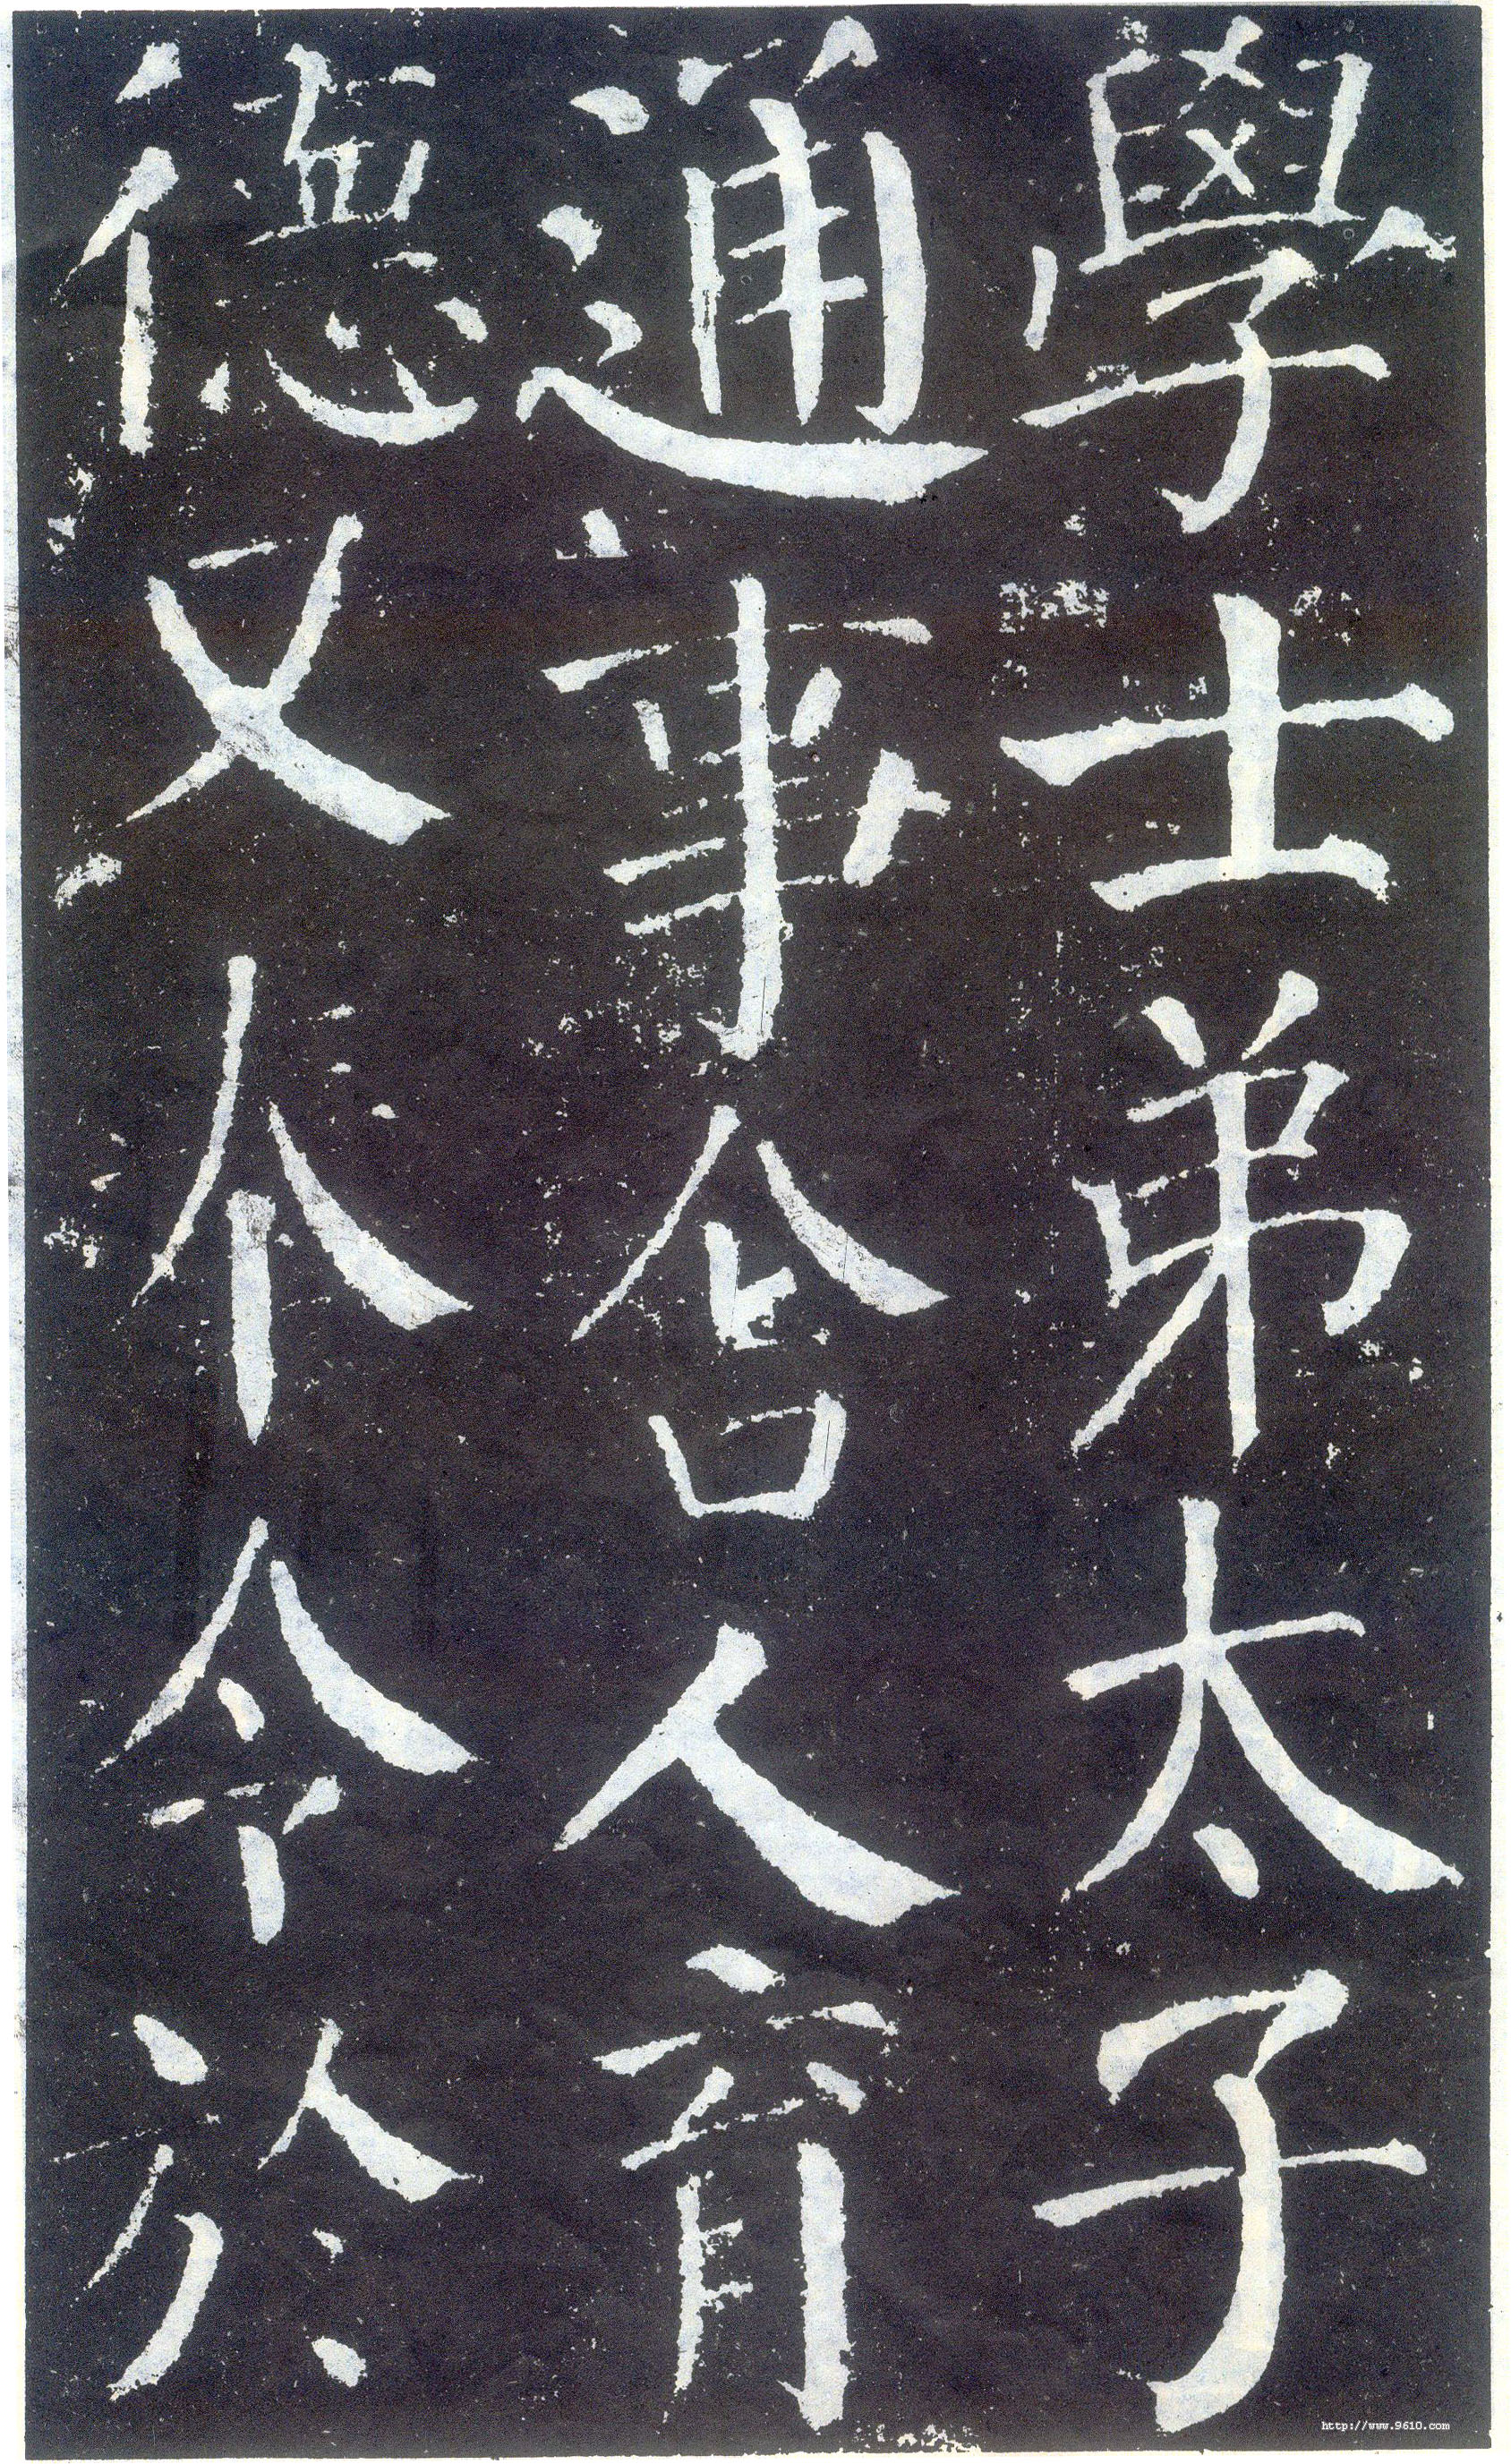 學士弟太子
通事舍人育
德又奉令於
http://www.9610.com